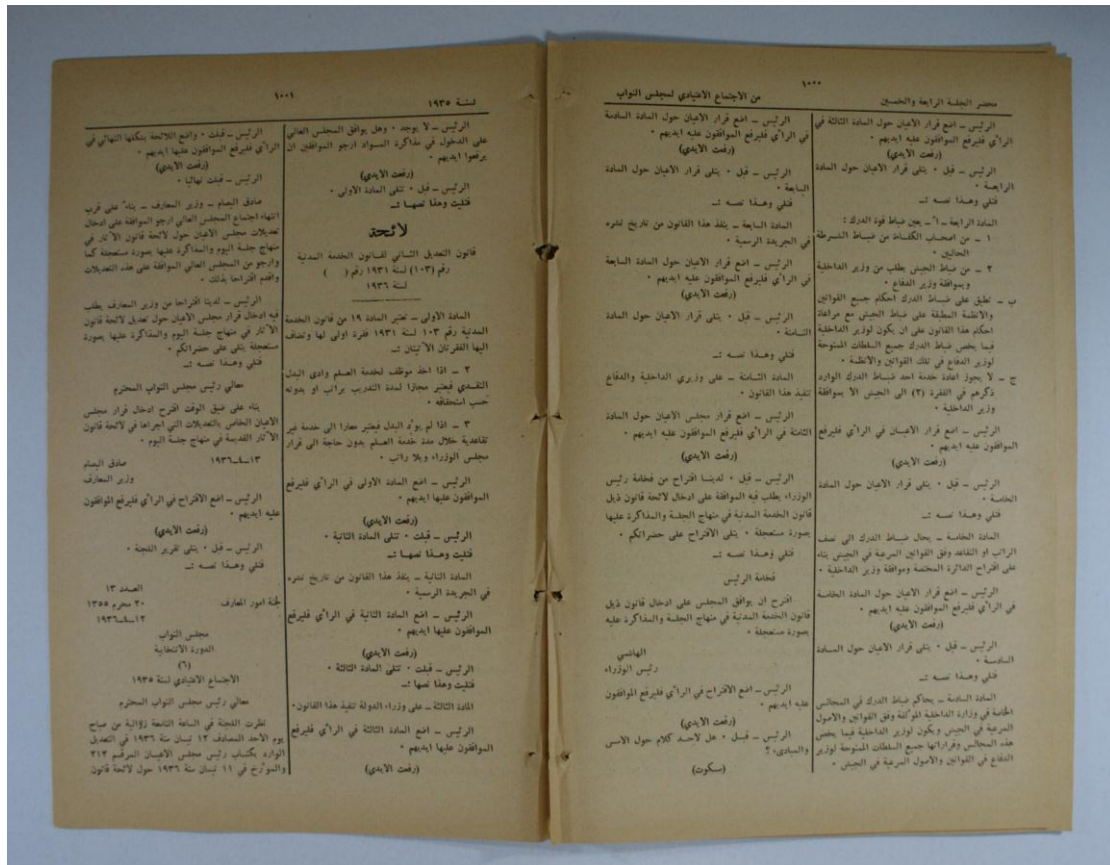 ١٠٠٠
محضر الجلسة الرابعة والخمسين
من الاجتماع الاعتيادي لمجلس النواب
الرئيس – اضع قرار الاعيان حول المادة الثالثة في
الرأي فليرفع الموافقون عليه ايديهم ٠
(رفعت الأيدي)
الرئيس – قبل ٠ يتلى قرار الاعيان حول المادة
الرابعة ٠
فتلي وهذا نصه :ـ
المادة الرابعة – أ – يعين ضباط قوة الدرك :
١ – من اصحاب الكفاءة من ضباط الشرطة
الحالين ٠
٢ – من ضباط الجيش بطلب من وزير الداخلية
وبموافقة وزير الدفاع ٠
ب – تطبق على ضباط الدرك احكام جميع القوانين
والانظمة المطبقة على ضباط الجيش مع مراعاة
احكام هذا القانون على ان يكون لوزير الداخلية
فيما يخص ضباط الدرك جميع السلطات الممنوحة
لوزير الدفاع في تلك القوانين والانظمة ٠
ج – لا يجوز اعادة خدمة احد ضباط الدرك الوارد
ذكرهم في الفقرة (٢) الى الجيش الا بموافقة
وزير الداخلية ٠
الرئيس – اضع قرار الاعيان في الرأي فليرفع
الموافقون عليه ايديهم ٠
(رفعت الايدي)
الرئيس – قبل ٠ يتلى قرار الاعيان حول المادة
الخامسة ٠
فتلي وهذا نصه :ـ
المادة الخامسة – يحال ضباط الدرك الى نصف
الراتب او التقاعد وفق القوانين المرعية في الجيش بناء
على اقتراح الدائرة المختصة وموافقة وزير الداخلية ٠
الرئيس – اضع قرار الاعيان حول المادة الخامسة
في الرأي فليرفع الموافقون عليه ايديهم ٠
(رفعت الأيدي)
الرئيس – قبل ٠ يتلى قرار الاعيان حول المادة
السادسة ٠
فتلي وهذا نصه :ـ
المادة السادسة – يحاكم ضباط الدرك في المجالس
الخاصة في وزارة الداخلية المؤلفة وفق القوانين والاصول
المرعية في الجيش ويكون لوزير الداخلية فيما يخص
هذه المجالس وقراراتها جميع السلطات الممنوحة لوزير
الدفاع في القوانين والاصول المرعية في الجيش ٠
الرئيس – اضع قرار الاعيان حول المادة السادسة
في الرأي فليرفع الموافقون عليه ايديهم ٠
(رفعت الأيدي)
الرئيس – قبل ٠ يتلى قرار الاعيان حول المادة
السابعة ٠
فتلي وهذا نصه :ـ
المادة السابعة – ينفذ هذا القانون من تاريخ نشره
في الجريدة الرسمية ٠
الرئيس – اضع قرار الاعيان حول المادة السابعة
في الرأي فليرفع الموافقون عليه ايديهم ٠
(رفعت الأيدي)
الرئيس – قبل ٠ يتلى قرار الاعيان حول المادة
الثامنة ٠
فتلي وهذا نصه :ـ
المادة الثامنة – على وزيري الداخلية والدفاع
تنفيذ هذا القانون ٠
الرئيس – اضع قرار مجلس الاعيان حول المادة
الثامنة في الرأي فليرفع الموافقون عليه ايديهم ٠
(رفعت الأيدي)
الرئيس – قبل ٠ لدينا اقتراح من فخامة رئيس
الوزراء يطلب فيه الموافقة على ادخال لائحة قانون ذيل
قانون الخدمة المدنية في منهاج الجلسة والمذاكرة عليها
بصورة مستعجلة ٠ يتلى الاقتراح على حضراتكم ٠
فتلي وهذا نصه :ـ
فخامة الرئيس
اقترح ان يوافق المجلس على ادخال قانون ذيل
قانون الخدمة المدنية في منهاج الجلسة والمذاكرة عليه
بصورة مستعجلة ٠
الهاشمي
رئيس الوزراء
الرئيس – اضع الاقتراح في الرأي فليرفع الموافقون
عليه ايديهم ٠
(رفعت الأيدي)
الرئيس – قبل ٠ هل لاحد كلام حول الاسس
والمبادىء ؟
(سكوت)
١٠٠١
لسنة ١٩٣٥
الرئيس – لا يوجد ٠ وهل يوافق المجلس العالي
على الدخول في مذاكرة المواد ارجو الموافقين ان
يرفعوا ايديهم ٠
(رفعت الأيدي)
الرئيس – قبل ٠ تتلى المادة الأولى ٠
فتليت وهذا نصها :ـ
لائحة
قانون التعديل الثاني لقانون الخدمة المدنية
رقم (١٠٣) لسنة ١٩٣١ رقم ( )
لسنة ١٩٣٦
المادة الاولى – تعتبر المادة ١٩ من قانون الخدمة
المدنية رقم ١٠٣ لسنة ١٩٣١ فقرة اولى لها وتضاف
اليها الفقرتان الآتيتان :ـ
٢ – اذا اخذ موظف لخدمة العلم وادى البدل
النقدي فيعتبر مجازا لمدة التدريب براتب او بدونه
حسب استحقاقه ٠
٣ – اذا لم يؤد البدل فيعتبر معارا الى خدمة غير
تقاعدية خلال مدة خدمة العلم بدون حاجة الى قرار
مجلس الوزراء وبلا راتب ٠
الرئيس – اضع المادة الاولى في الرأي فليرفع
الموافقون عليها ايديهم ٠
(رفعت الأيدي)
الرئيس – قبلت ٠ تتلى المادة الثانية ٠
فتليت وهذا نصها :ـ
المادة الثانية – ينفذ هذا القانون من تاريخ نشره
في الجريدة الرسمية ٠
الرئيس – اضع المادة الثانية في الرأي فليرفع
الموافقون عليها ايديهم ٠
(رفعت الأيدي)
الرئيس – قبلت ٠ تتلى المادة الثالثة ٠
فتليت وهذا نصها :ـ
المادة الثالثة – على وزراء الدولة تنفيذ هذا القانون٠
الرئيس – اضع المادة الثالثة في الرأي فليرفع
الموافقون عليها ايديهم ٠
(رفعت الأيدي)
الرئيس – قبلت ٠ واضع اللائحة بشكلها النهائي في
الرأي فليرفع الموافقون عليها ايديهم ٠
(رفعت الأيدي)
الرئيس – قبلت نهائيا ٠
صادق البصام – وزير المعارف – بناء على قرب
انتهاء اجتماع المجلس العالي ارجو الموافقة على ادخال
تعديلات مجلس الاعيان حول لائحة قانون الآثار في
منهاج جلسة اليوم والمذاكرة عليها بصورة مستعجلة كما
وارجو من المجلس العالي الموافقة على هذه التعديلات
واقدم اقتراحا بذلك ٠
الرئيس – لدينا اقتراحا من وزير المعارف يطلب
فيه ادخال قرار مجلس الاعيان حول تعديل لائحة قانون
الآثار في منهاج جلسة اليوم والمذاكرة عليها بصورة
مستعجلة يتلى على حضراتكم ٠
فتلي وهذا نصه :ـ
معالي رئيس مجلس النواب المحترم
بناء على ضيق الوقت اقترح ادخال قرار مجلس
الاعيان الخاص بالتعديلات التي اجراها في لائحة قانون
الآثار القديمة في منهاج جلسة اليوم ٠
١٣–٤–١٩٣٦
صادق البصام
وزير المعارف
الرئيس – اضع الاقتراح في الرأي فليرفع الموافقون
عليه ايديهم ٠
(رفعت الأيدي)
الرئيس – قبل ٠ يتلى تقرير اللجنة ٠
فتلي وهذا نصه :ـ
العدد ١٣
لجنة امور المعارف
٢٠ محرم ١٣٥٥
١٢–٤–١٩٣٦
مجلس النواب
الدورة الانتخابية
(٦)
الاجتماع الاعتيادي لسنة ١٩٣٥
معالي رئيس مجلس النواب المحترم
نظرت اللجنة في الساعة التاسعة زوالية من صباح
يوم الاحد المصادف ١٢ نيسان سنة ١٩٣٦ في التعديل
الوارد بكتاب رئيس مجلس الاعيان المرقم ٢١٢
والمؤرخ في ١١ نيسان سنة ١٩٣٦ حول لائحة قانون